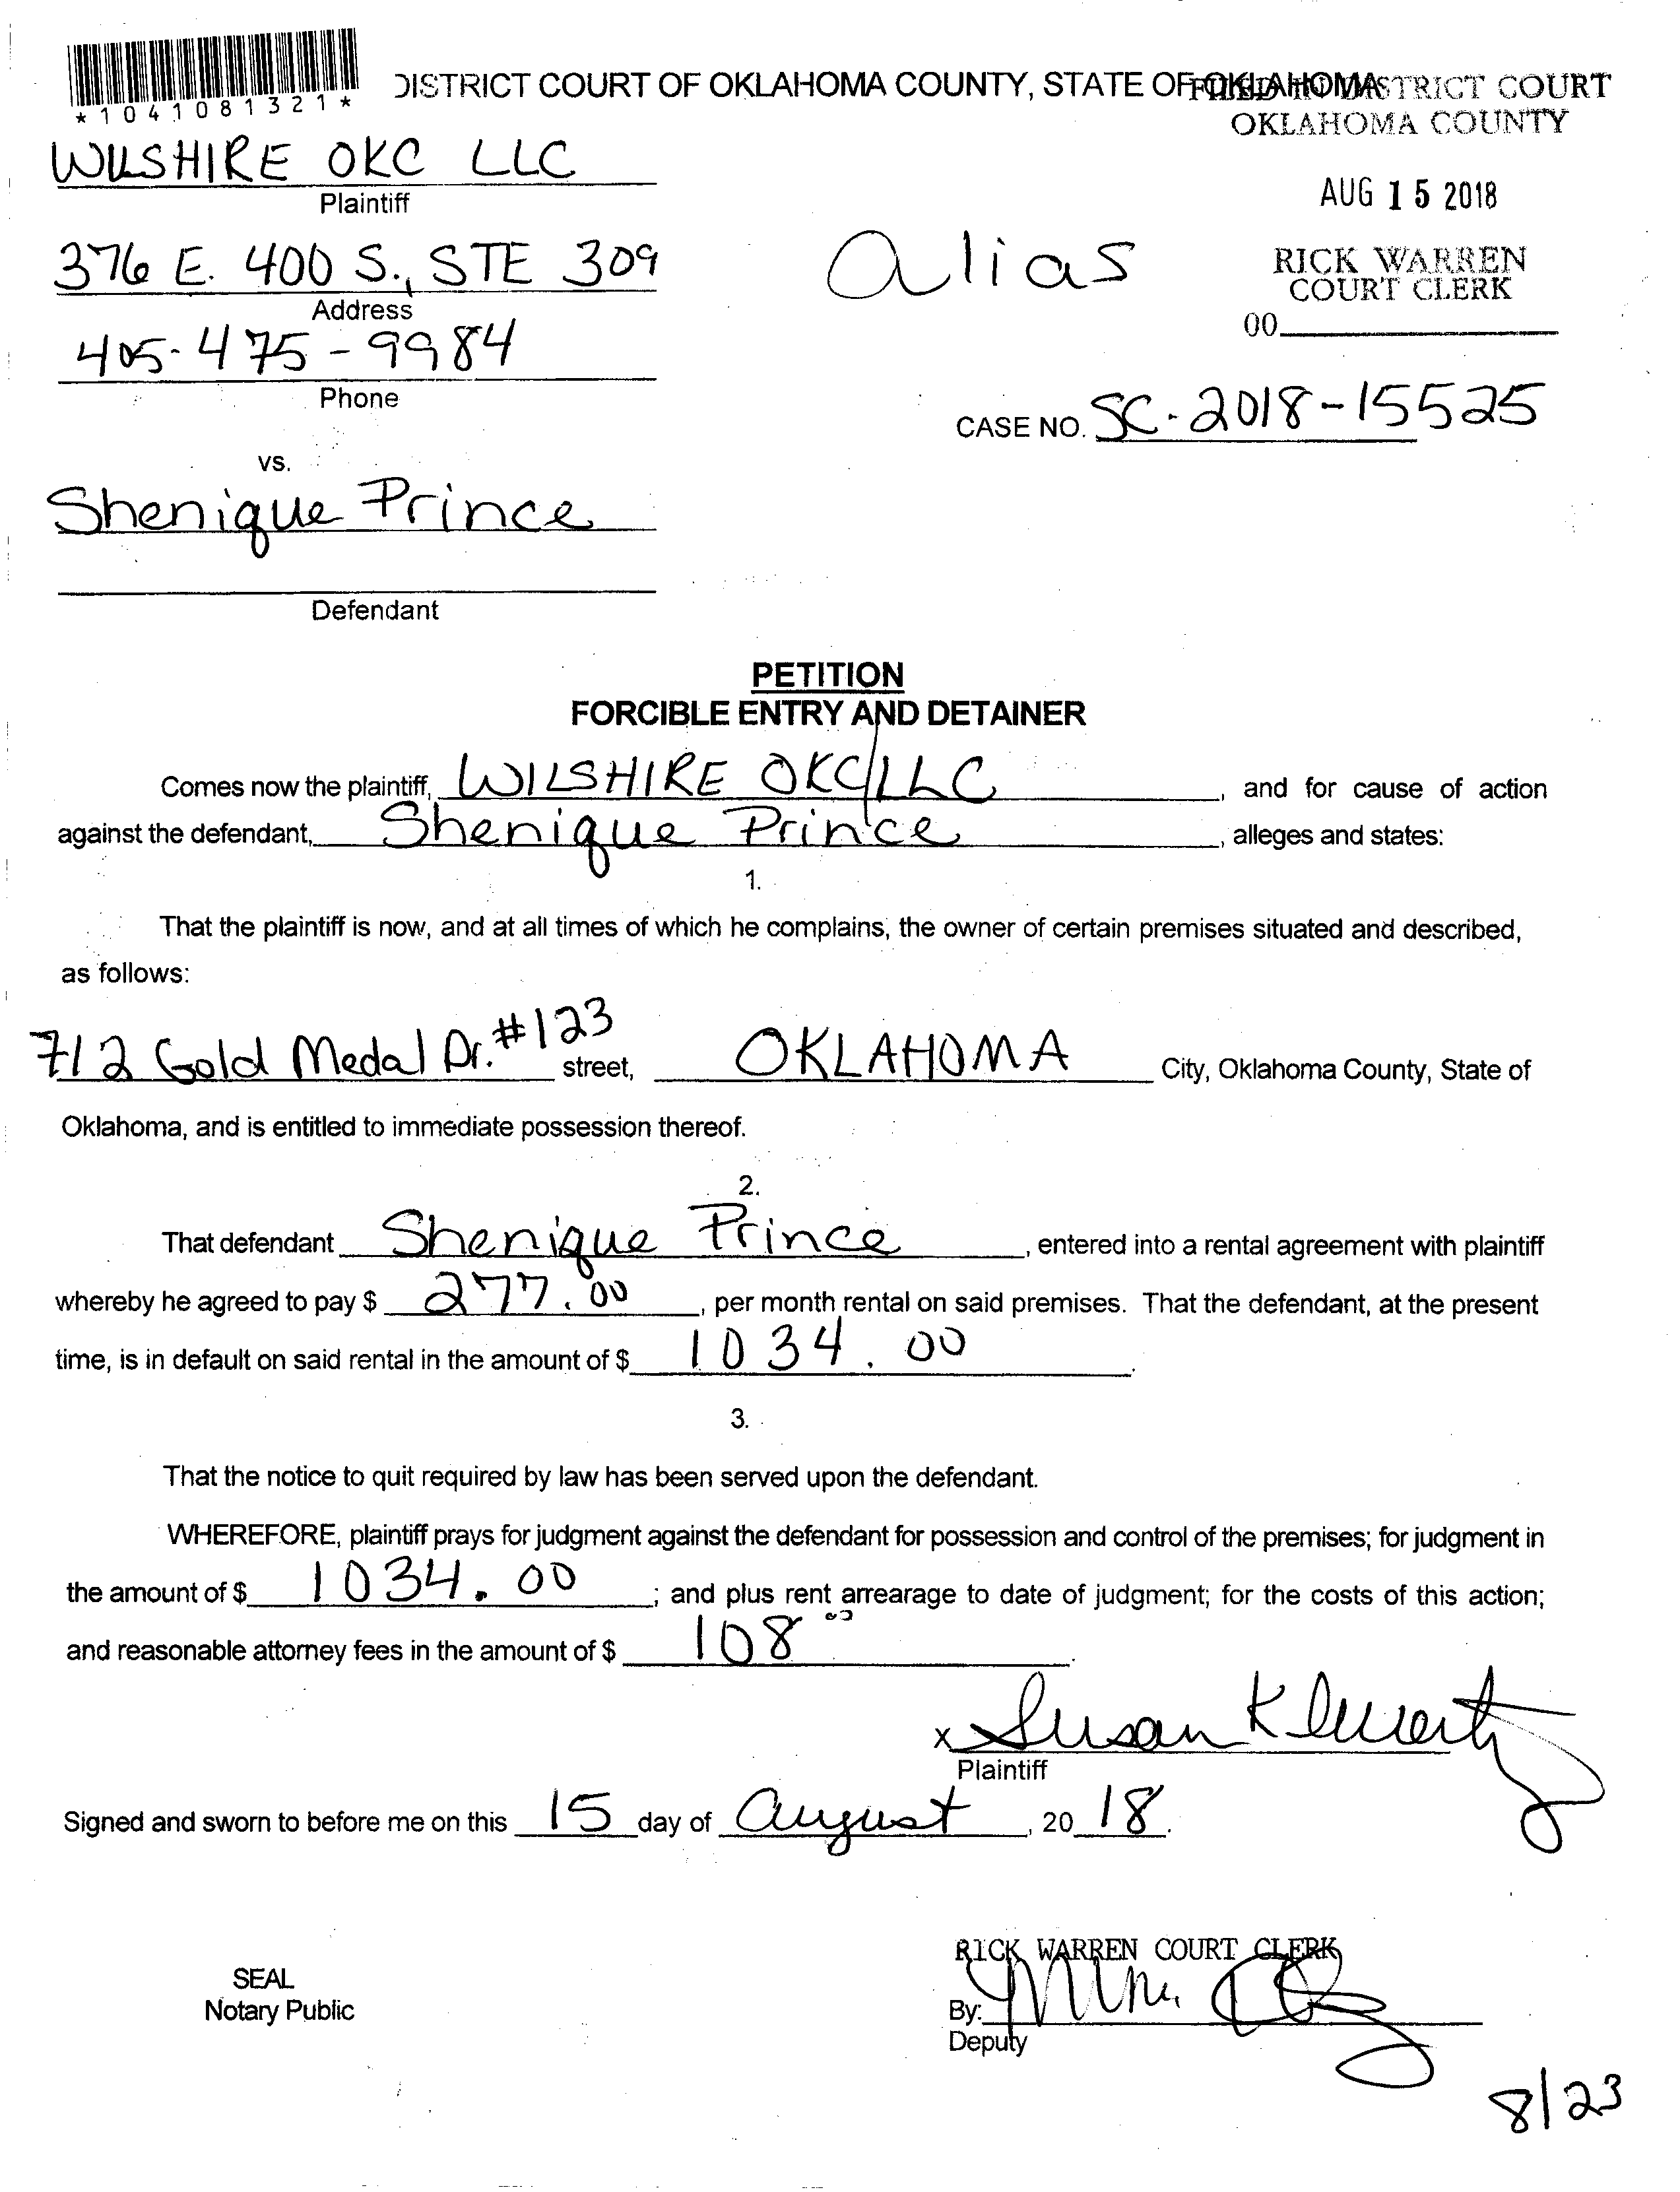 *1041081321*
DISTRICT COURT OF OKLAHOMA COUNTY, STATE OF OKLAHOMA
FILED IN DISTRICT COURT
OKLAHOMA COUNTY
WILSHIRE OKC LLC
Plaintiff
AUG 15 2018
376 E. 400 S., STE 309
Address
alias
RICK WARREN
COURT CLERK
00
405-475-9984
Phone
CASE NO. SC-2018-15525
vs.
Shenique Prince
Defendant
PETITION
FORCIBLE ENTRY AND DETAINER
Comes now the plaintiff, WILSHIRE OKC LLC, and for cause of action
against the defendant, Shenique Prince, alleges and states:
1.
That the plaintiff is now, and at all times of which he complains, the owner of certain premises situated and described,
as follows:
712 Gold Medal Dr. #123 street, OKLAHOMA City, Oklahoma County, State of
Oklahoma, and is entitled to immediate possession thereof.
2.
That defendant Shenique Prince, entered into a rental agreement with plaintiff
whereby he agreed to pay $ 277.00, per month rental on said premises. That the defendant, at the present
time, is in default on said rental in the amount of $ 1034.00.
3.
That the notice to quit required by law has been served upon the defendant.
WHEREFORE, plaintiff prays for judgment against the defendant for possession and control of the premises; for judgment in
the amount of $ 1034.00; and plus rent arrearage to date of judgment; for the costs of this action;
and reasonable attorney fees in the amount of $ 108.
x Susan
Plaintiff
Signed and sworn to before me on this 15 day of August, 20 18.
RICK WARREN COURT CLERK
SEAL
Notary Public
By:
Deputy
8/23